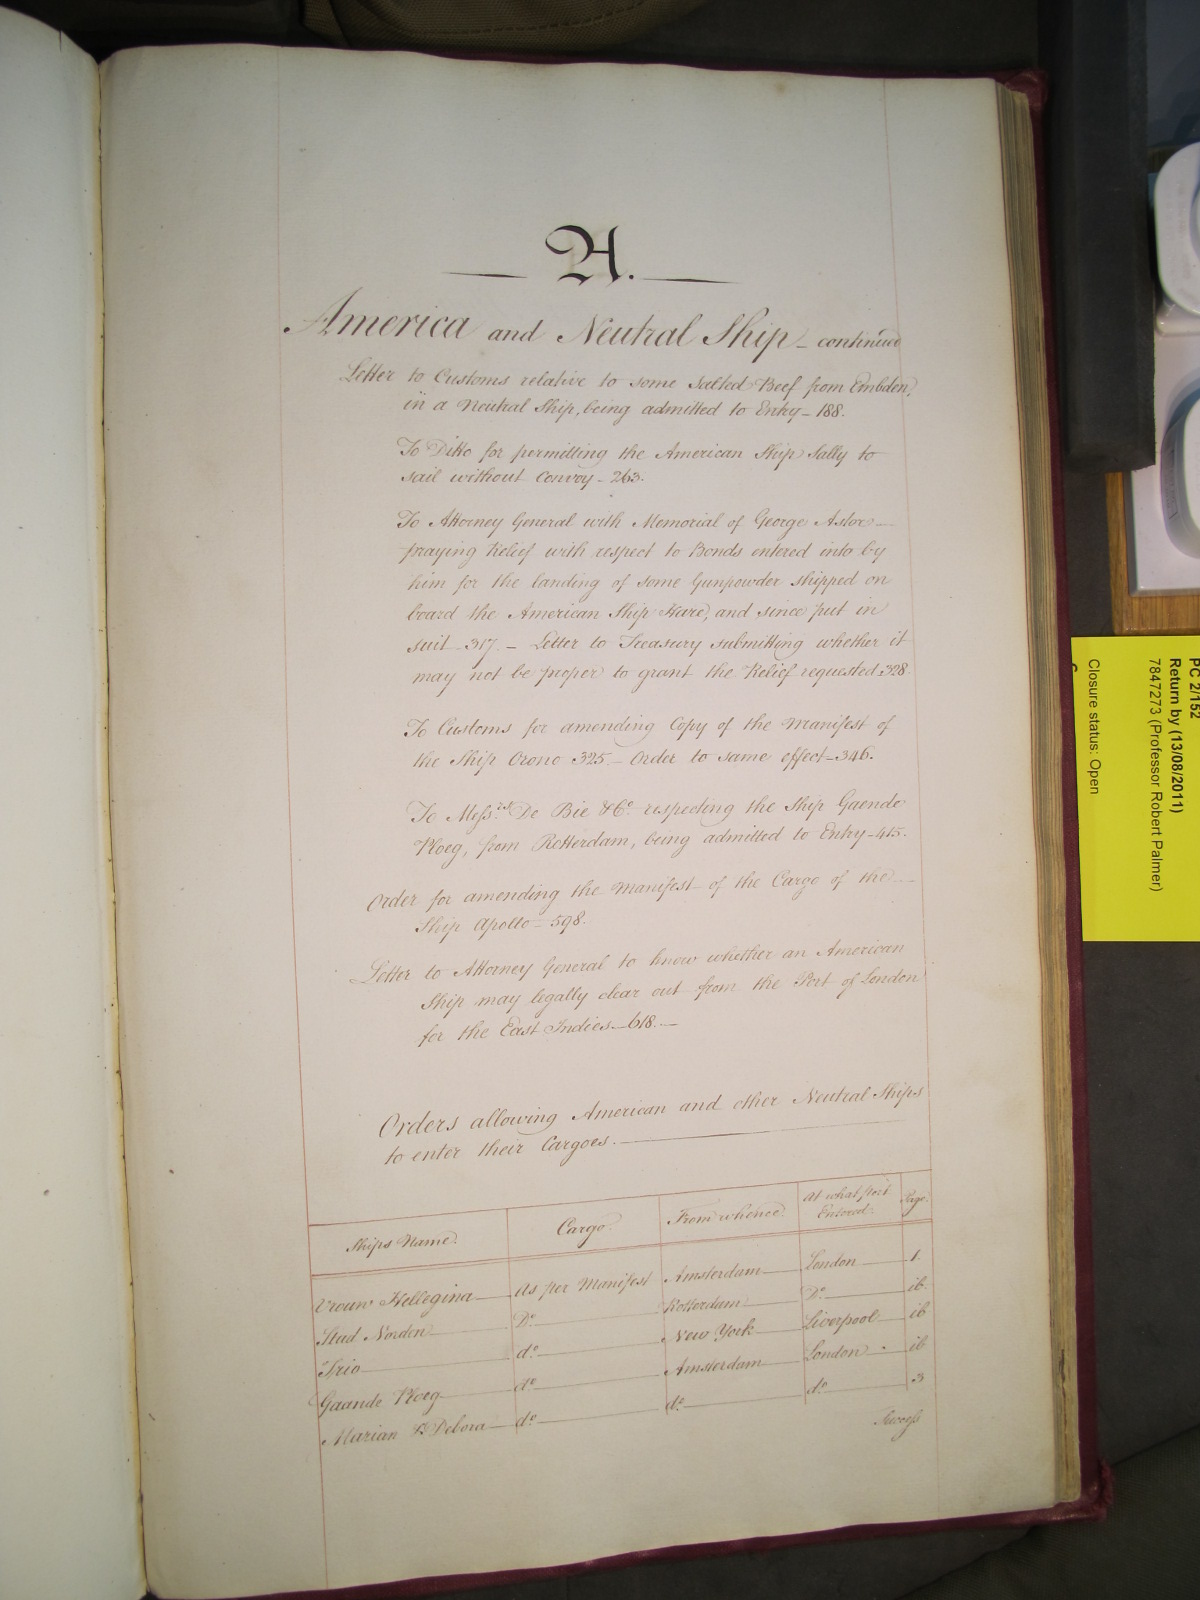 A.
America and Neutral Ship - continued
Letter to Customs relative to some Salted Beef from Embden,
in a Neutral Ship, being admitted to Entry - 188.
To Ditto for permitting the American Ship Sally to
sail without Convoy - 263.
To Attorney General with Memorial of George Astor
praying Relief with respect to Bonds entered into by
him for the landing of some Gunpowder shipped on
board the American Ship Hare, and since put in
suit 317. - Letter to Treasury submitting whether it
may not be proper to grant the Relief requested 328
To Customs for amending Copy of the Manifest of
the Ship Orono 325 - Order to same effect - 346.
To Messrs. De Bie & Co. respecting the Ship Gaende
Ploeg, from Rotterdam, being admitted to Entry - 415.
Order for amending the Manifest of the Cargo of the
Ship Apollo - 598.
Letter to Attorney General to know whether an American
Ship may legally clear out from the Port of London
for the East Indies - 618. -
Orders allowing American and other Neutral Ships
to enter their Cargoes.
Ships Name. Cargo. From whence. At what Port Entered. Page.
Vrouw Hellegina As per Manifest Amsterdam London 1.
Stud Norden Do. Rotterdam Do. ib.
Trio do. New York Liverpool ib
Gaande Ploeg do. Amsterdam London ib
Marian & Debora do. do. do. 3
Success
PC 2/152
Return by (13/08/2011)
7847273 (Professor Robert Palmer)
Closure status: Open